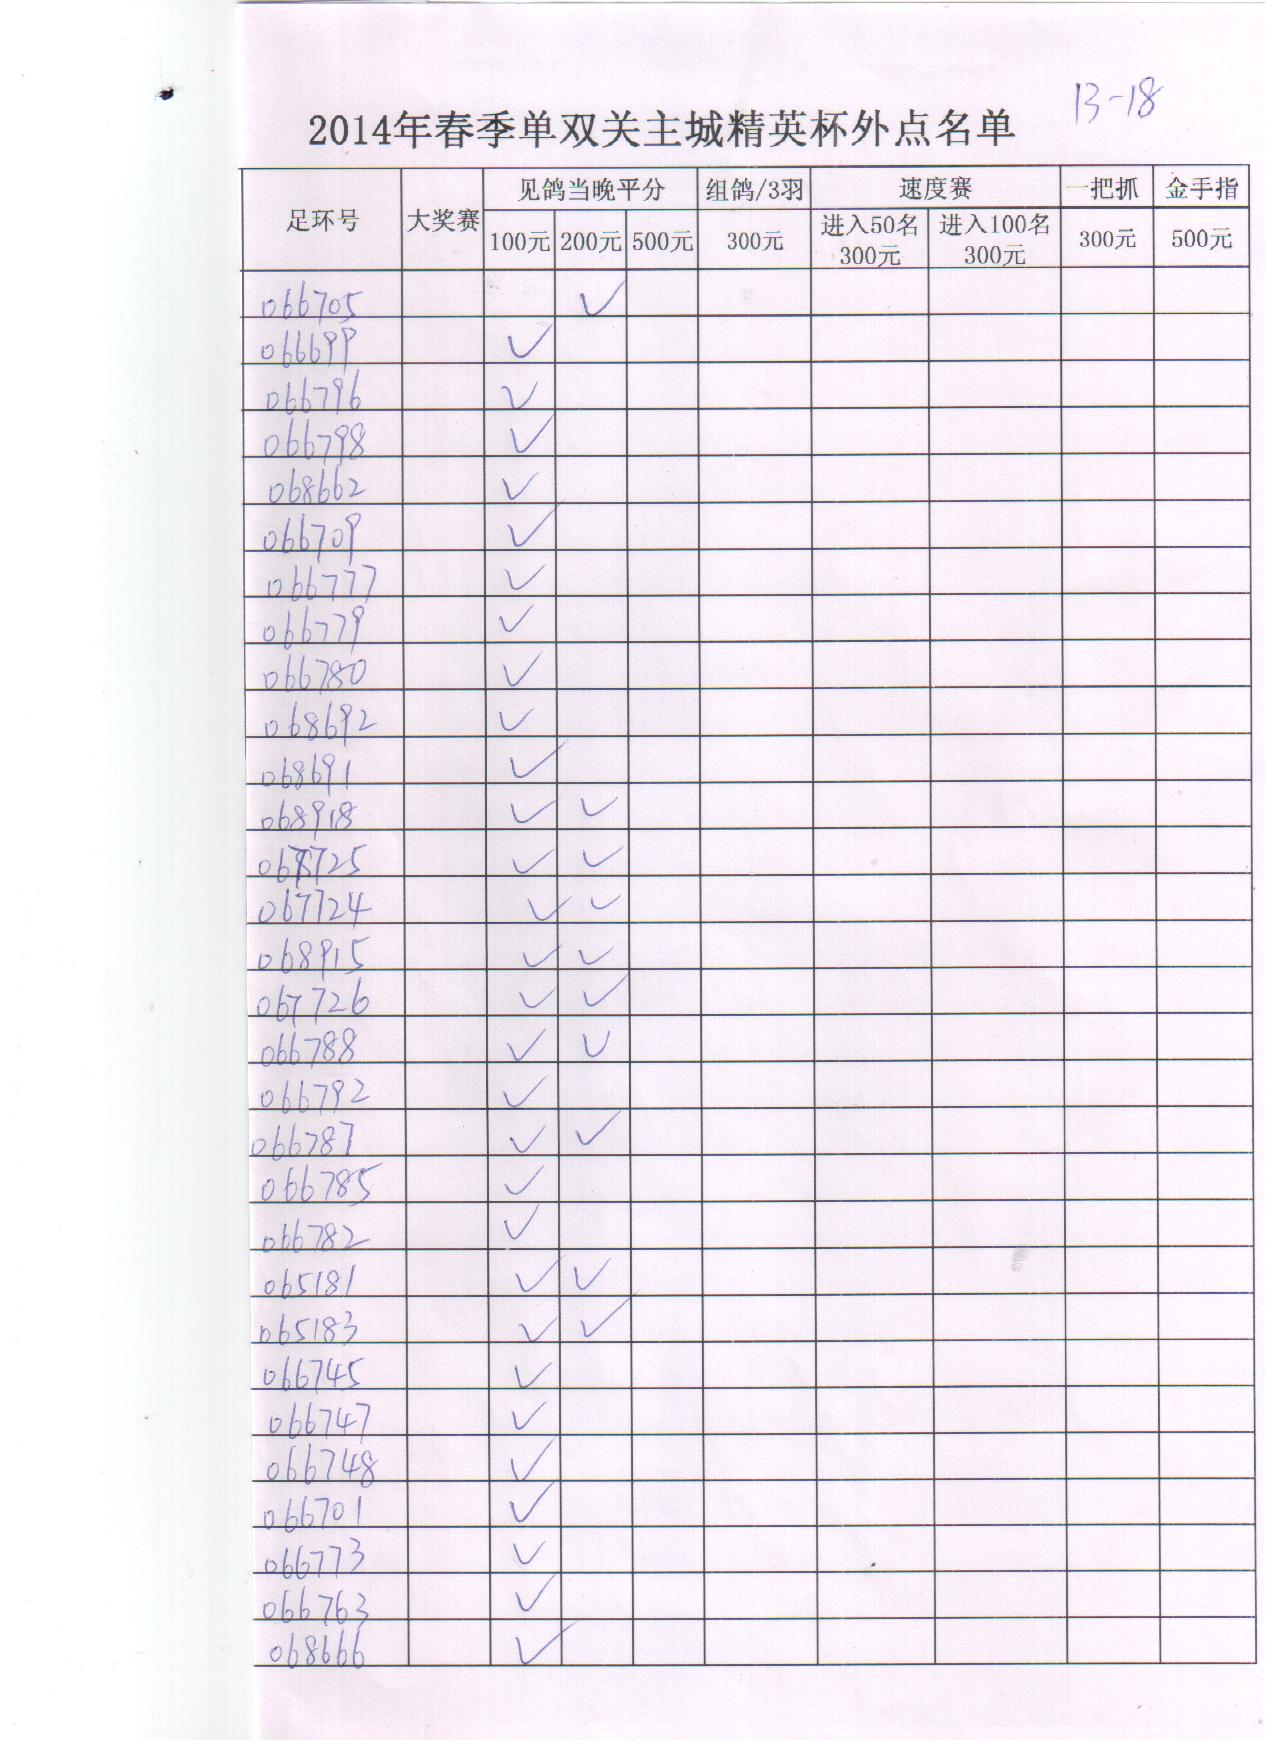 13-18
2014年春季单双关主城精英杯外点名单
足环号 大奖赛 见鸽当晚平分 组鸽/3羽 速度赛 一把抓 金手指
100元 200元 500元 300元 进入50名 300元 进入100名 300元 300元 500元
066705 ✓
066699 ✓
066796 ✓
066798 ✓
068662 ✓
066709 ✓
066777 ✓
066779 ✓
066780 ✓
068692 ✓
068691 ✓
068918 ✓ ✓
067725 ✓ ✓
067724 ✓ ✓
068915 ✓ ✓
067726 ✓ ✓
066788 ✓ ✓
066792 ✓
066787 ✓ ✓
066785 ✓
066782 ✓
065181 ✓ ✓
065183 ✓ ✓
066745 ✓
066747 ✓
066748 ✓
066701 ✓
066773 ✓
066763 ✓
068666 ✓